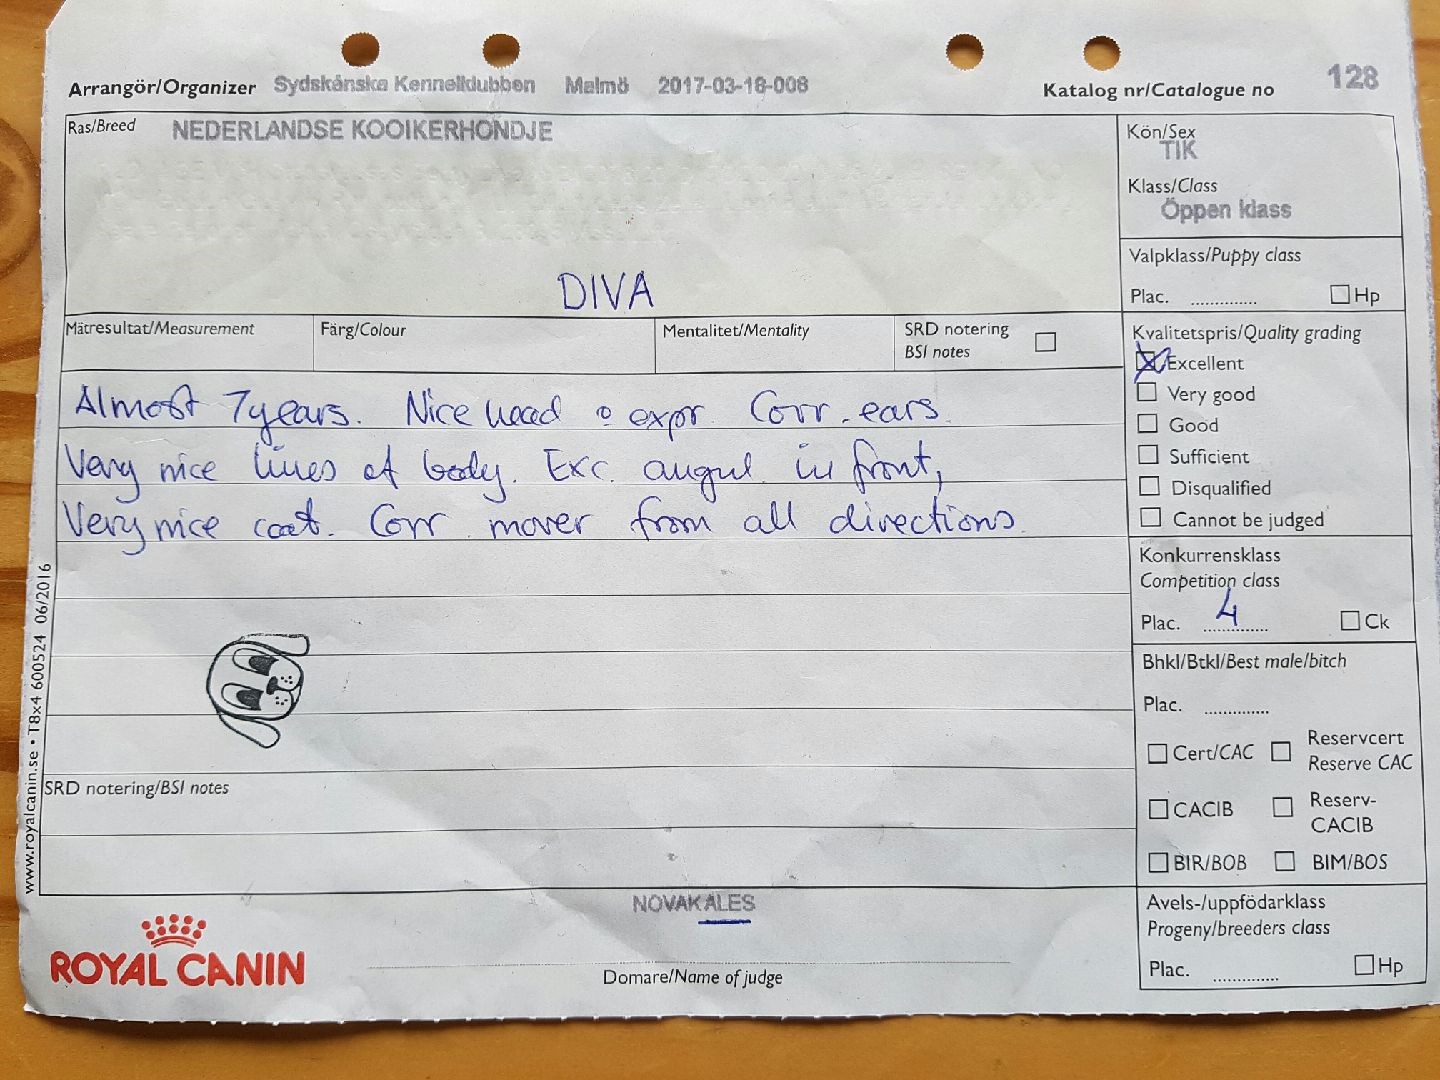 Arrangör/Organizer Sydskånska Kennelklubben Malmö 2017-03-18-008 Katalog nr/Catalogue no 128
Ras/Breed NEDERLANDSE KOOIKERHONDJE
DIVA
Kön/Sex
TIK
Klass/Class
Öppen klass
Valpklass/Puppy class
Plac. .............. Hp
Mätresultat/Measurement Färg/Colour Mentalitet/Mentality SRD notering
BSI notes
Almost 7 years. Nice head o expr. Corr. ears.
Very nice lines of body. Exc. angul. in front,
Very nice coat. Corr mover from all directions.
Kvalitetspris/Quality grading
Excellent
Very good
Good
Sufficient
Disqualified
Cannot be judged
Konkurrensklass
Competition class
Plac. 4 Ck
Bhkl/Btkl/Best male/bitch
Plac. ..............
Cert/CAC Reservcert
Reserve CAC
CACIB Reserv-
CACIB
BIR/BOB BIM/BOS
Avels-/uppfödarklass
Progeny/breeders class
Plac. .............. Hp
SRD notering/BSI notes
NOVAK ALES
Domare/Name of judge
ROYAL CANIN
www.royalcanin.se • T8x4 600524 06/2016